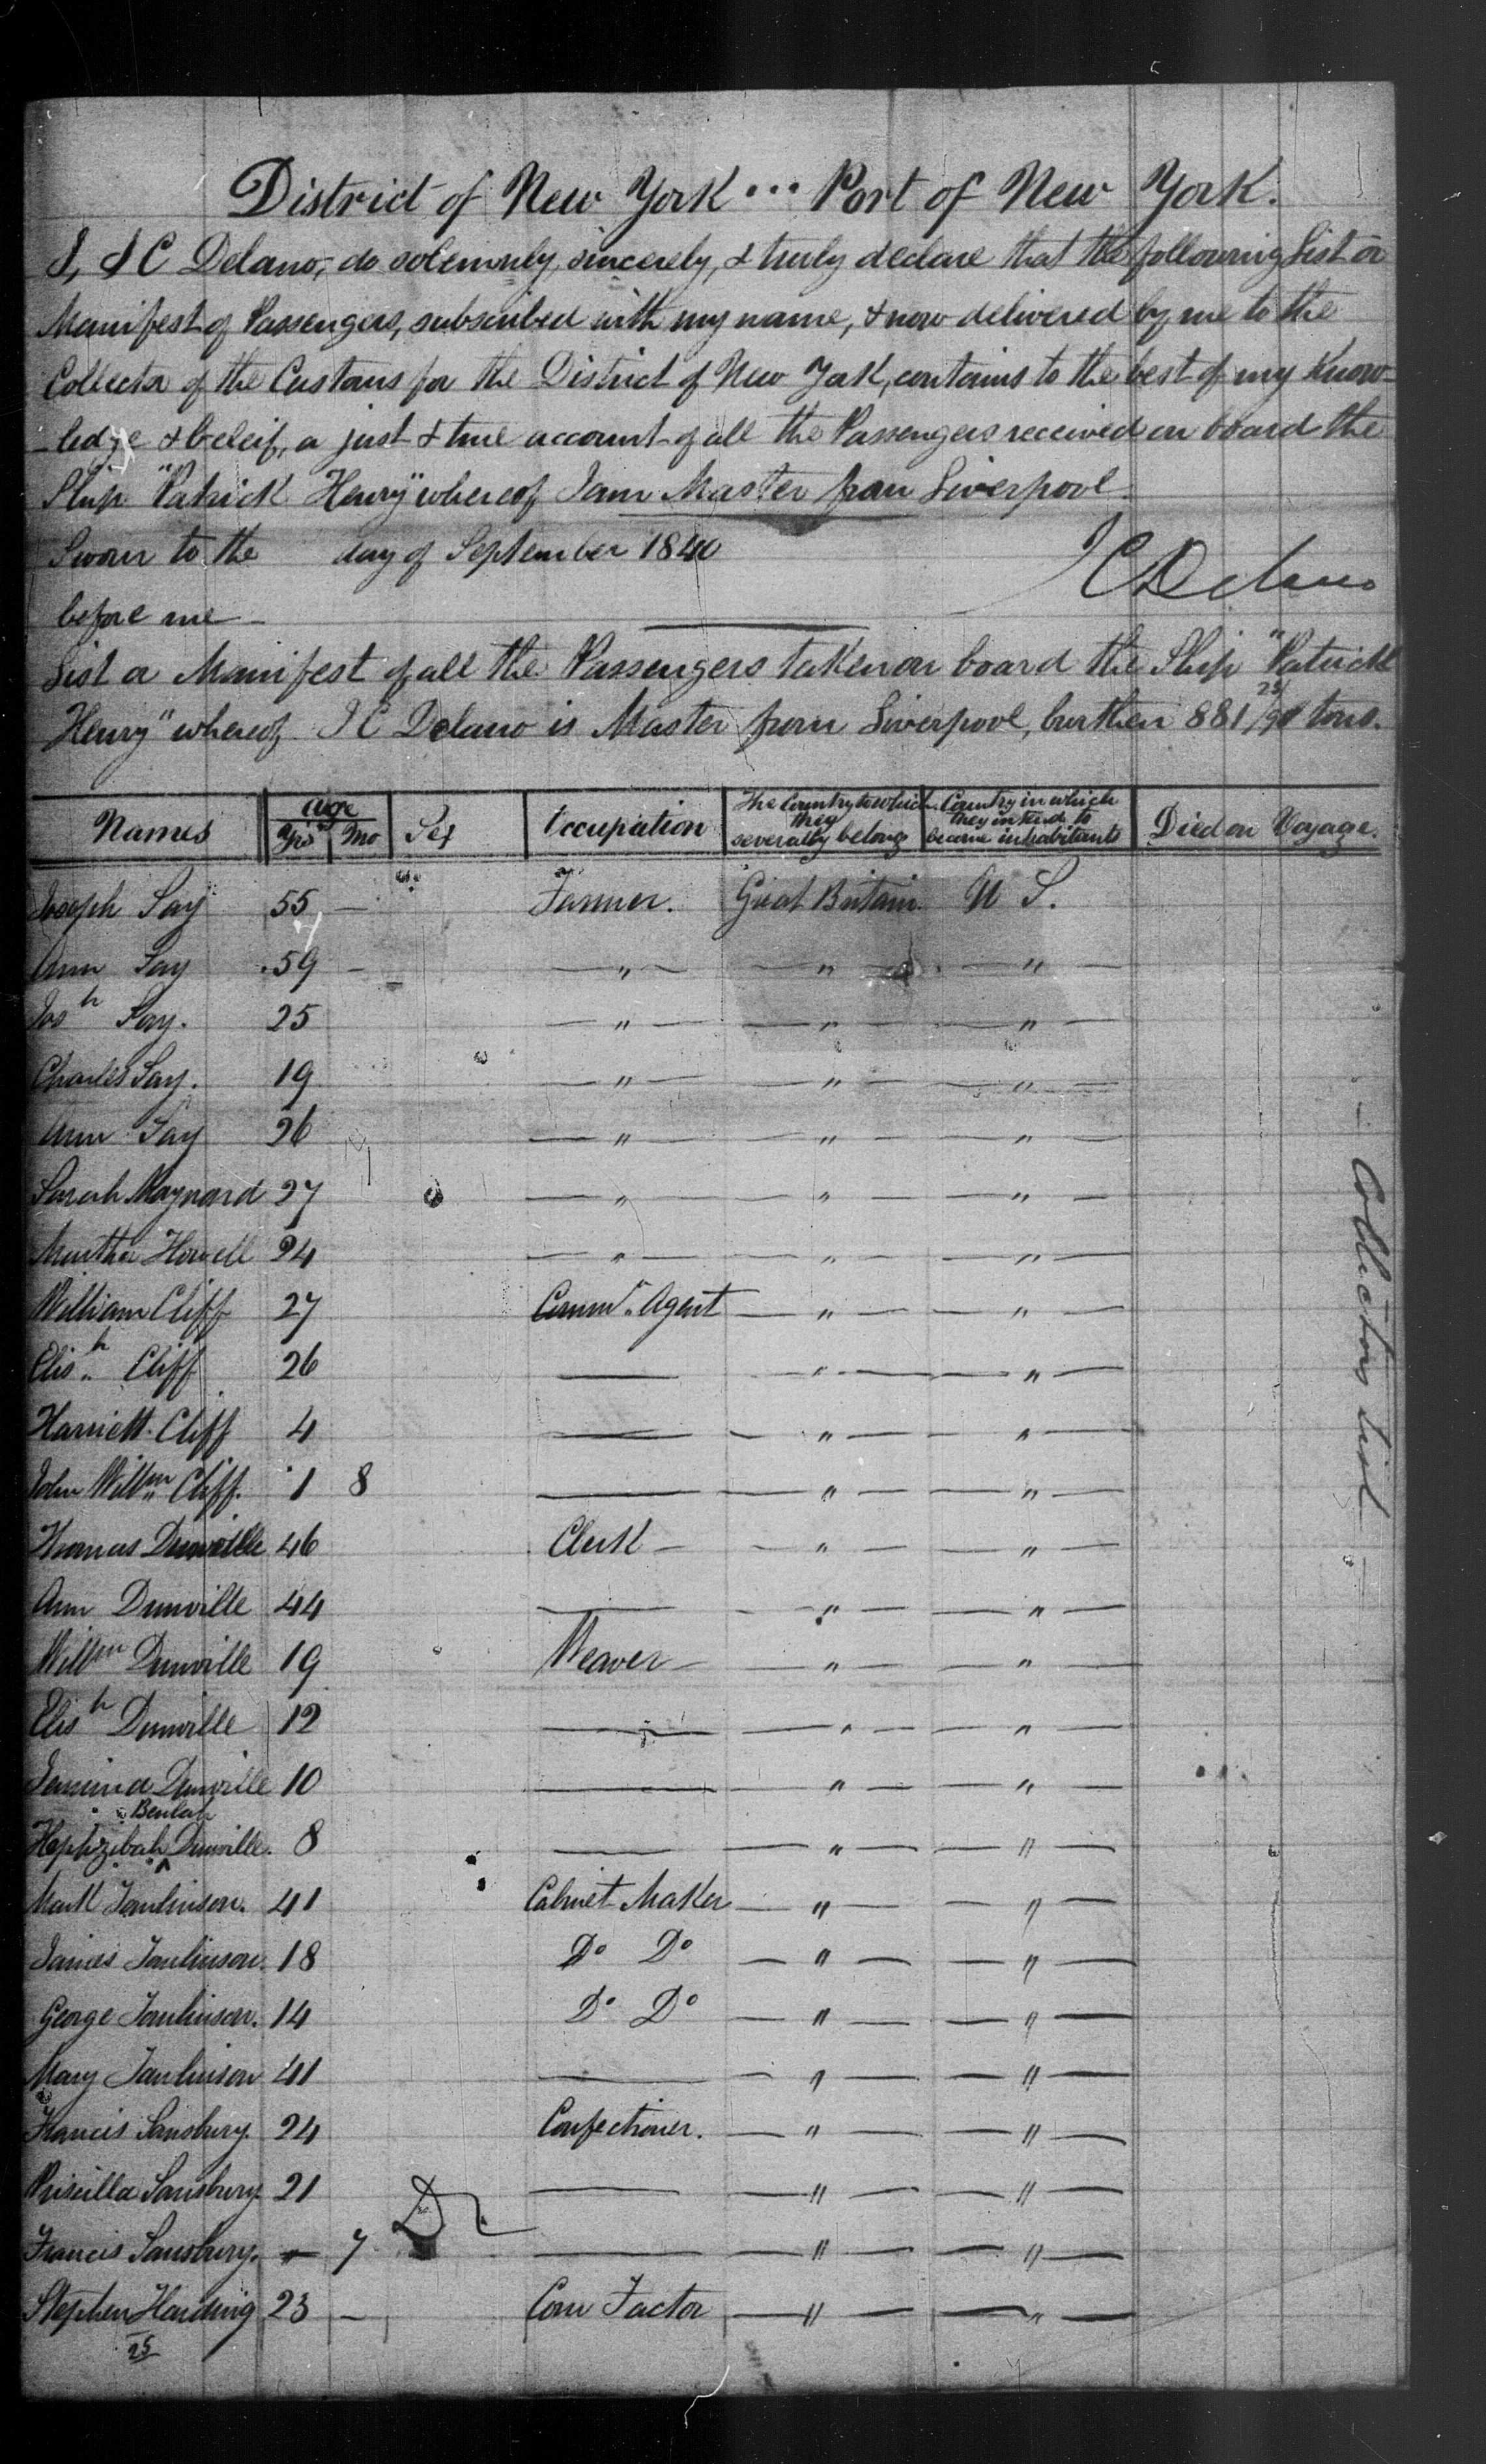 District of New York ... Port of New York.
I, J C Delano, do solemnly, sincerely, & truly declare that the following List or
Manifest of Passengers, subscribed with my name, & now delivered by me to the
Collector of the Customs for the District of New York, contains to the best of my Know-
-ledge & beleif, a just & true account of all the Passengers received on board the
Ship "Patrick Henry" whereof I am Master from Liverpool
Sworn to the day of September 1840
J C Delano
before me
List or Manifest of all the Passengers taken on board the Ship "Patrick
Henry" whereof J C Delano is Master from Liverpool, burthen 881 /90 tons.
Names Age Yrs Mo Sex Occupation The Country to which they severally belong Country in which they intend to become inhabitants Died on Voyage.
Joseph Say 55 — Farmer. Great Britain. U S.
Ann Say 59 — " " "
Josh Say. 25 " " "
Charles Say. 19 " " "
Ann Say 26 " " "
Sarah Maynard 27 " " "
Martha Howell 24 " " "
William Cliff 27 Commn. Agent " "
Elish Cliff 26 — " "
Harriett Cliff 4 — " "
John Willm Cliff. 1 8 — " "
Thomas Dunville 46 Clerk — " "
Ann Dunville 44 — " "
Willm Dunville 19 Weaver — " "
Elish Dunville 12 — " "
Jemima Dunville 10 — " "
Beulah
Hephzibah ^ Dunville. 8 — " "
Mark Tomlinson. 41 Cabinet Maker " "
James Tomlinson. 18 Do Do " "
George Tomlinson. 14 Do Do " "
Mary Tomlinson 41 — " "
Francis Sansbury. 24 Confectioner. " "
Priscilla Sansbury 21 — " "
Francis Sansbury. — 7 — " "
Stephen Harding 23 — Corn Factor " "
25
Collectors List